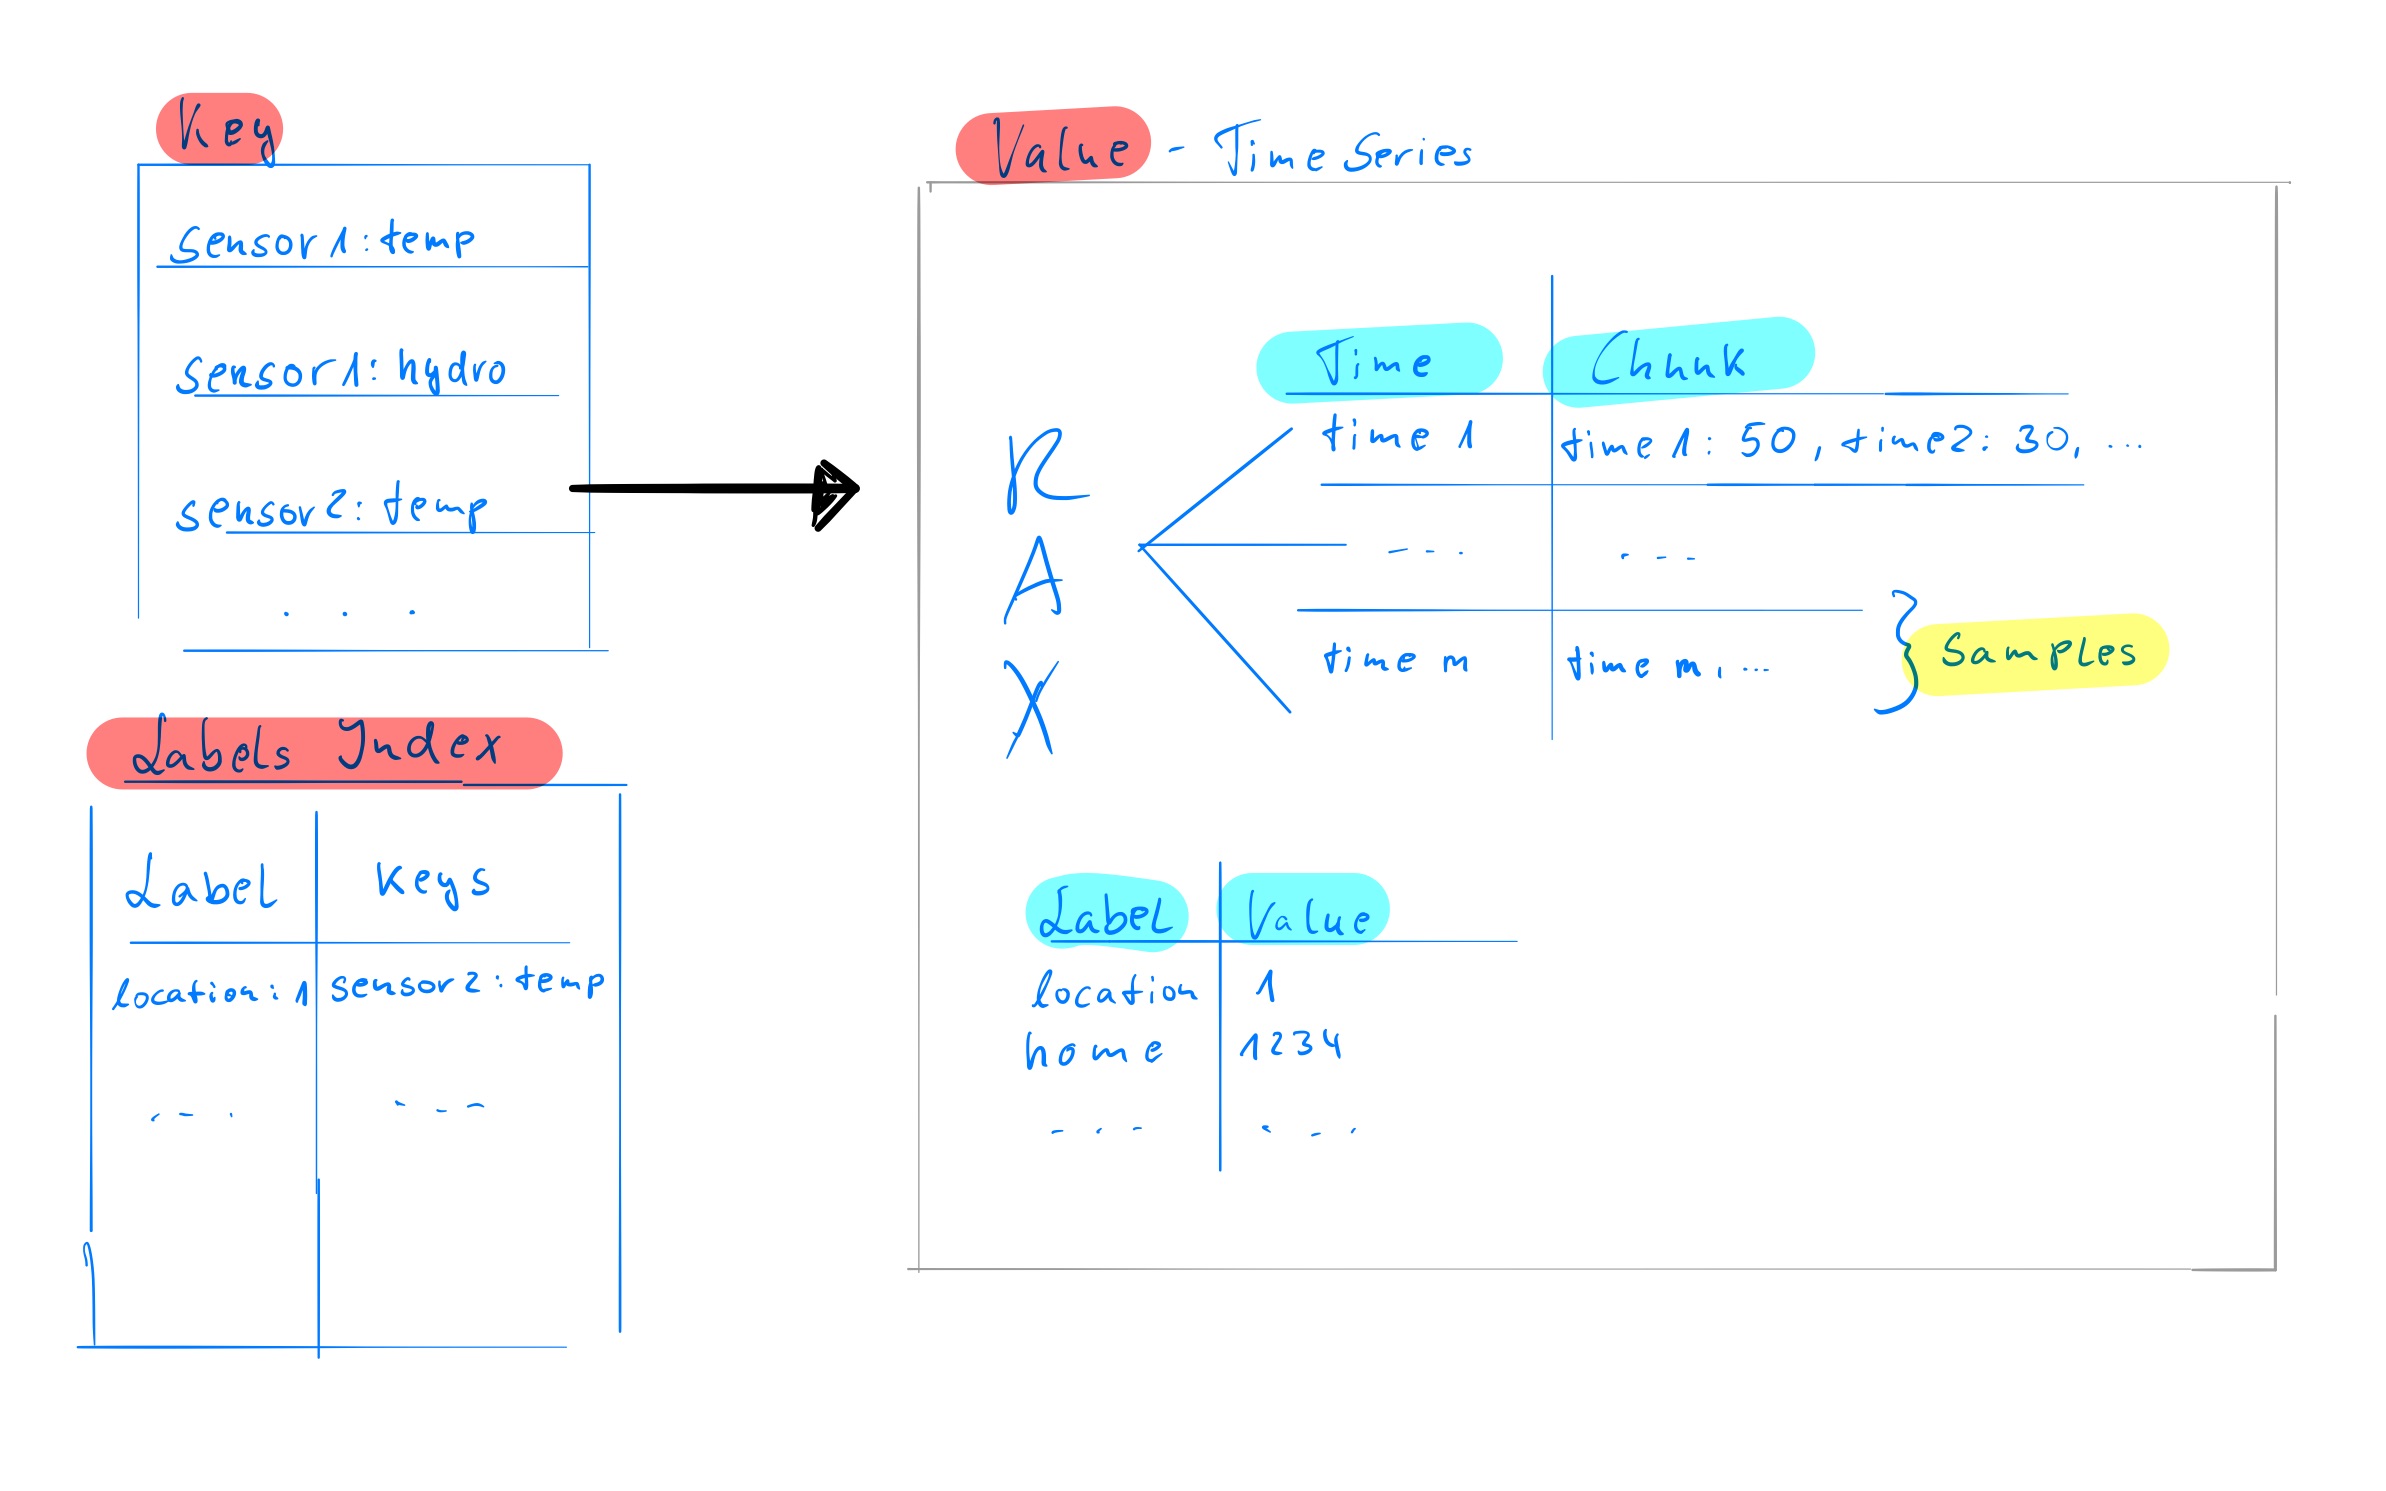 Key
sensor1:temp
sensor1:hydro
sensor2:temp
. . .
Labels Index
Label Keys
location:1 sensor2:temp
... ...
Value - Time Series
R
A
X
Time Chunk
time 1 time1: 50, time2: 30, ...
... ...
time n time n, ...
Samples
Label Value
location 1
home 1234
... ...